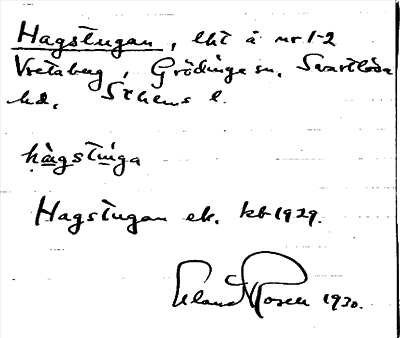 Hagstugan, lht å nr 1-2
Vretaberg, Grödinge sn, Svartlösa
hd, Sthems l.
hagstuga
Hagstugan ek. kb 1929.
Roland Rosell 1930.